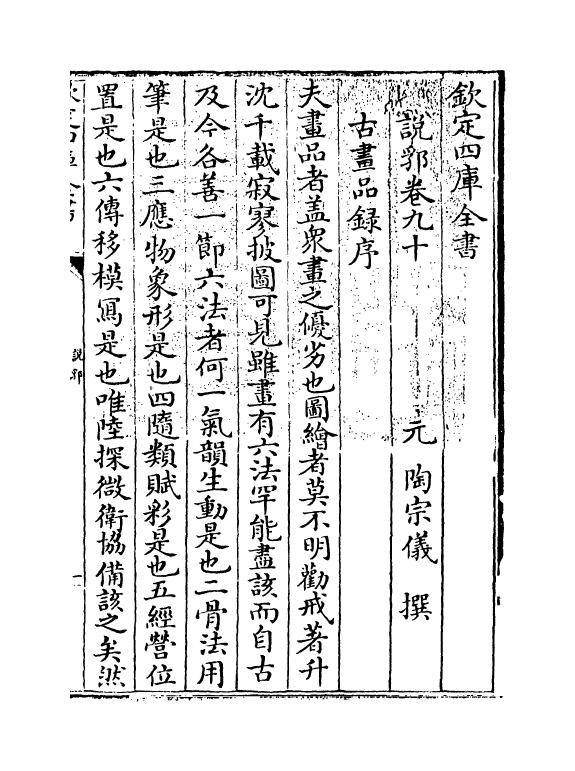 欽定四庫全書
說郛卷九十 元 陶宗儀 撰
古畫品録序
夫畫品者盖衆畫之優劣也圖繪者莫不明勸戒著升
沈千載寂寥披圖可見雖畫有六法罕能盡該而自古
及今各善一節六法者何一氣韻生動是也二骨法用
筆是也三應物象形是也四隨類賦彩是也五經營位
置是也六傳移模寫是也唯陸探微衛協備該之矣然
說郛
一